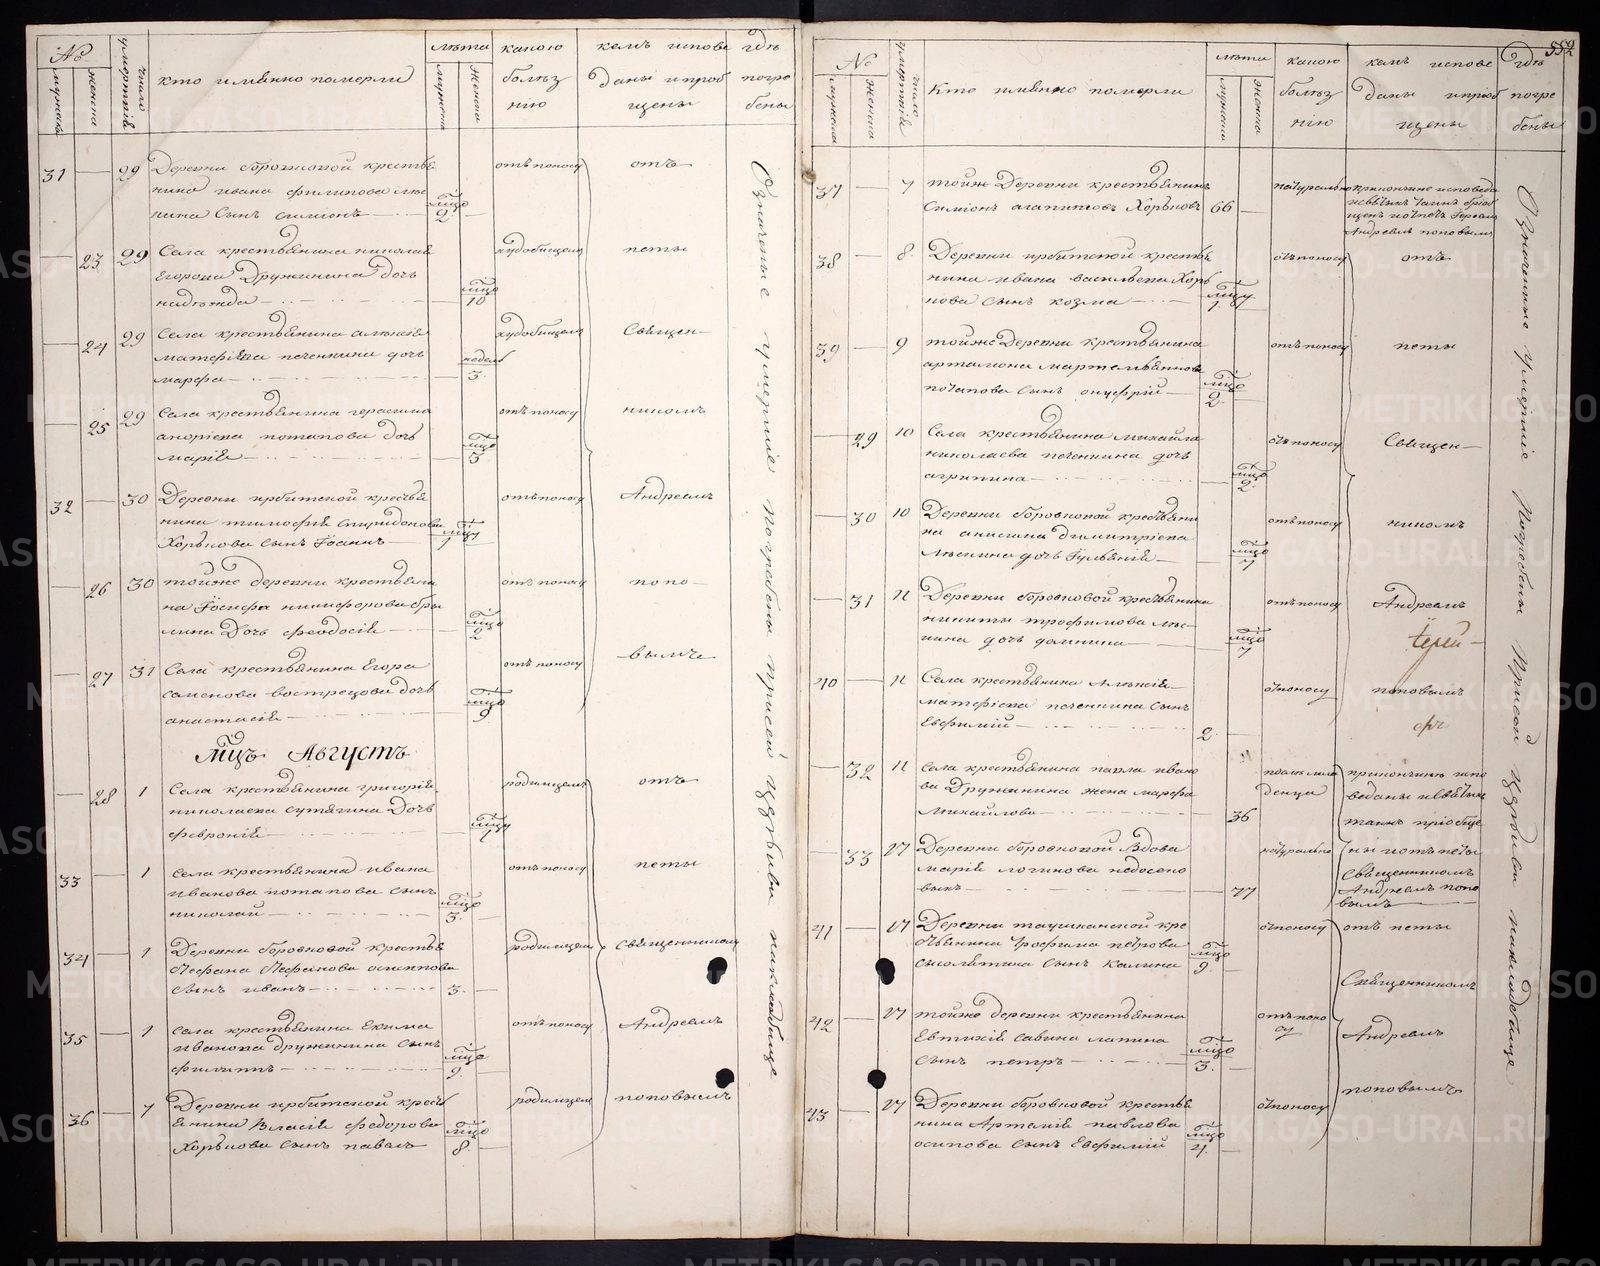 №
мужска
женска
число умертвій
кто имянно померли
лѣта
мужска
женска
какою болѣз нію
кемъ испове даны ипріоб щены
гдѣ погре бены
31 — 29 Деревни боровской крестья
нина ивана филипова
сынъ симіонъ — 2
отъ поносу
отъ
23 29 Села крестьянина николая
Егорова Дружинина дочь
надѣжда — 10
петы
24 29 Села крестьянина алексія
матфіева печенкина дочь
марфа — недель 3
Священ—
25 29 Села крестьянина герасима
андріева потапова дочь
марія — 3
отъ поносу
никомъ
32 — 30 Деревни ирбитской крестья
нина тимофія спиридонова
Хорькова сынъ Іоаннъ — 1
отъ поносу
Андреемъ
26 30 тойже деревни крестьяни
на Іосифа никифорова
дочь феодосія — 2
отъ поносу
попо—
27 31 Села крестьянина Егора
семенова вострецова дочь
анастасія — 9
отъ поносу
вымъ
Мцъ Августъ
28 1 Села крестьянина григорія
николаева сутягина Дочь
февронія —
родимцемъ
отъ
33 — 1 Села крестьянина ивана
иванова потапова сынъ
николай — 3
отъ поносу
петы
34 — 1 Деревни боровской крестья
Стефана Стефанова осипова
сынъ иванъ — 3
родимцемъ
священникомъ
35 — 1 села крестьянина Екима
иванова дружинина сынъ
филиппъ — 9
отъ поносу
Андреемъ
36 — 7 Деревни ирбитской кресть
янина Власія федорова
Хорькова сынъ павелъ 8
родимцемъ
поповымъ
Означеные умершіе погребены присей церкви накладбище
552
№
мужска
женска
число умертвій
Кто имянно померли
лѣта
мужска
женска
какою болѣз нію
кемъ испове даны ипріоб щены
гдѣ погре бены
37 — 7 тойже Деревни крестьянинъ
Симіонъ агапитовъ Хорьковъ 66 —
натурально
прикончине исповеда
Андреемъ поповымъ
38 — 8 Деревни ирбитской крестья
нина ивана васильева Хорь
кова сынъ козма — 1
отъ поносу
отъ
39 — 9 тойже Деревни крестьянина
артамона мартемьянова
потапова сынъ онуфрій — 2
отъ поносу
петы
29 10 Села крестьянина михайла
николаева печенкина дочь
агрипина — 2
отъ поносу
Священ—
30 10 Деревни боровской крестьяни
на анисима димитріева
дочь Іуліанія — 7
отъ поносу
никомъ
31 11 Деревни боровской крестьянина
никиты трофимова
дочь домнина — 7
отъ поносу
Андреемъ
Іерей—
40 — 11 Села крестьянина Алексія
матфіева печенкина сынъ
Евфимій — 2
отъ поносу
поповымъ
32 11 Села крестьянина павла ивано
ва Дружинина жена марфа
михайлова — 36
прикончине испо
веданы исвятыхъ
таинъ пріобще
33 27 Деревни боровской Вдова
марія логинова
77
натурально
ны иотъ петы
Священникомъ
Андреемъ попо
вымъ
41 — 27 Деревни кре
стьянина трофима петрова
сынъ калина 9
отъ поносу
отъ петы
Священникомъ
42 — 27 тойже деревни крестьянина
Евтихія савина лапина
сынъ петръ — 3
отъ поно
су
Андреемъ
43 — 27 Деревни боровской крестья
нина Артемія павлова
осипова сынъ Евфимій 4
отъ поносу
поповымъ
Означенные умершіе Погребены присей церкви накладбище
METRIKI.GASO-URAL.RU